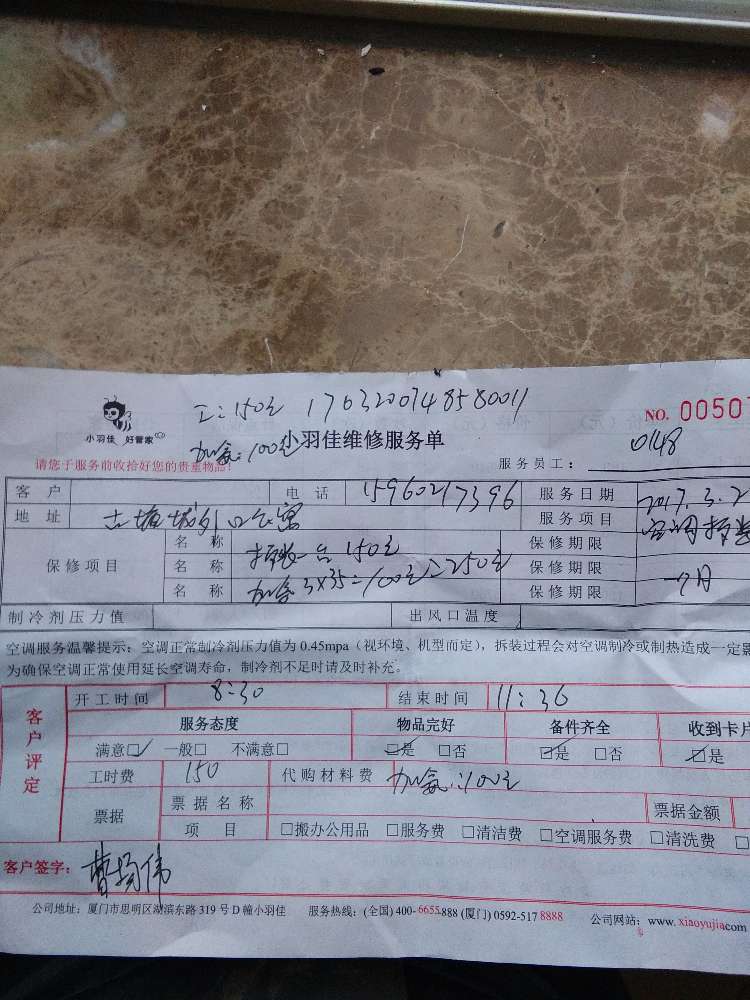 工：150元 1703200748580011
NO. 00507
小羽佳 好管家
加氨：100元 小羽佳维修服务单
请您于服务前收拾好您的贵重物品！
服务员工： 0148
客 户 电 话 15960217396 服务日期 2017.3.2
地 址 服务项目 空调拆装
保修项目 名 称 拆装一台150元 保修期限
名 称 加氨3×35=100元=250元 保修期限
名 称 保修期限 一个月
制冷剂压力值 出风口温度
空调服务温馨提示：空调正常制冷剂压力值为 0.45mpa（视环境、机型而定），拆装过程会对空调制冷或制热造成一定影
为确保空调正常使用延长空调寿命，制冷剂不足时请及时补充。
客户评定
开工时间 8:30 结束时间 11:30
服务态度 物品完好 备件齐全 收到卡片
满意□ 一般□ 不满意□ □是 □否 □是 □否 □是
工时费 150 代购材料费 加氨：100元
票据 票 据 名 称 票据金额
项 目 □搬办公用品 □服务费 □清洁费 □空调服务费 □清洗费
客户签字： 曹扬伟
公司地址：厦门市思明区湖滨东路 319 号 D 幢小羽佳 服务热线：(全国) 400-6655-888 (厦门) 0592-517 8888 公司网站：www.xiaoyujia.com